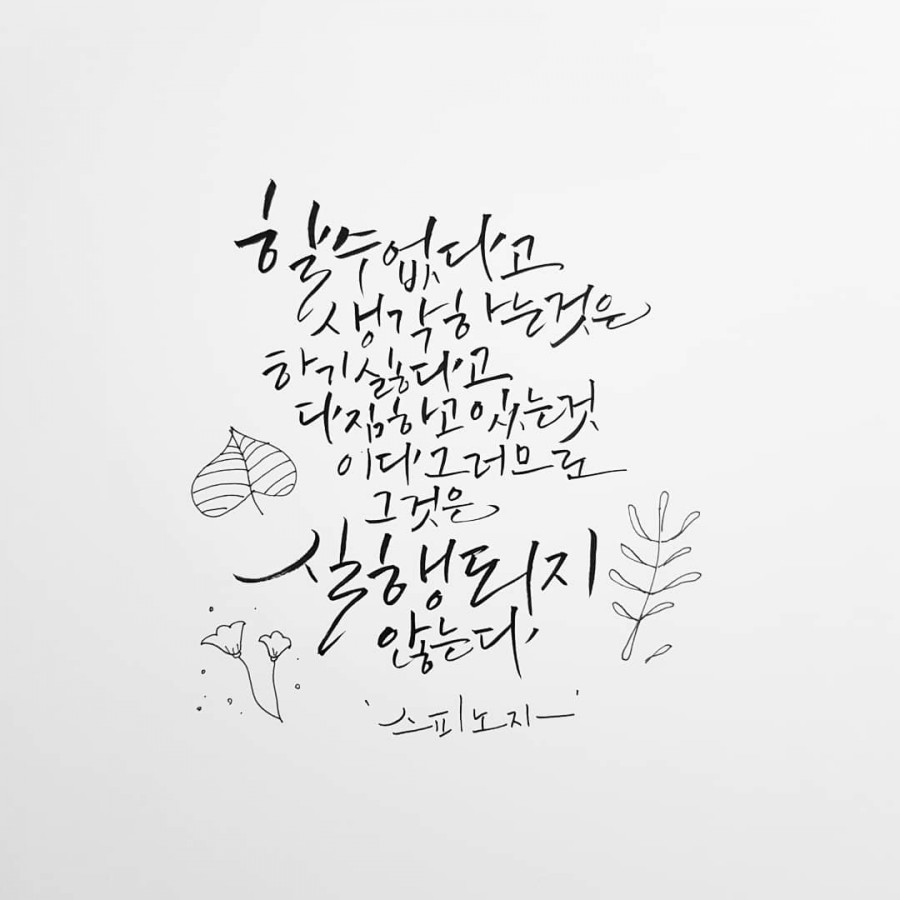 할 수 없다고
생각하는 것은
하기 싫다고
다짐하고 있는 것
이다 그러므로
그것은
실행되지
않는다,
'스피노자'